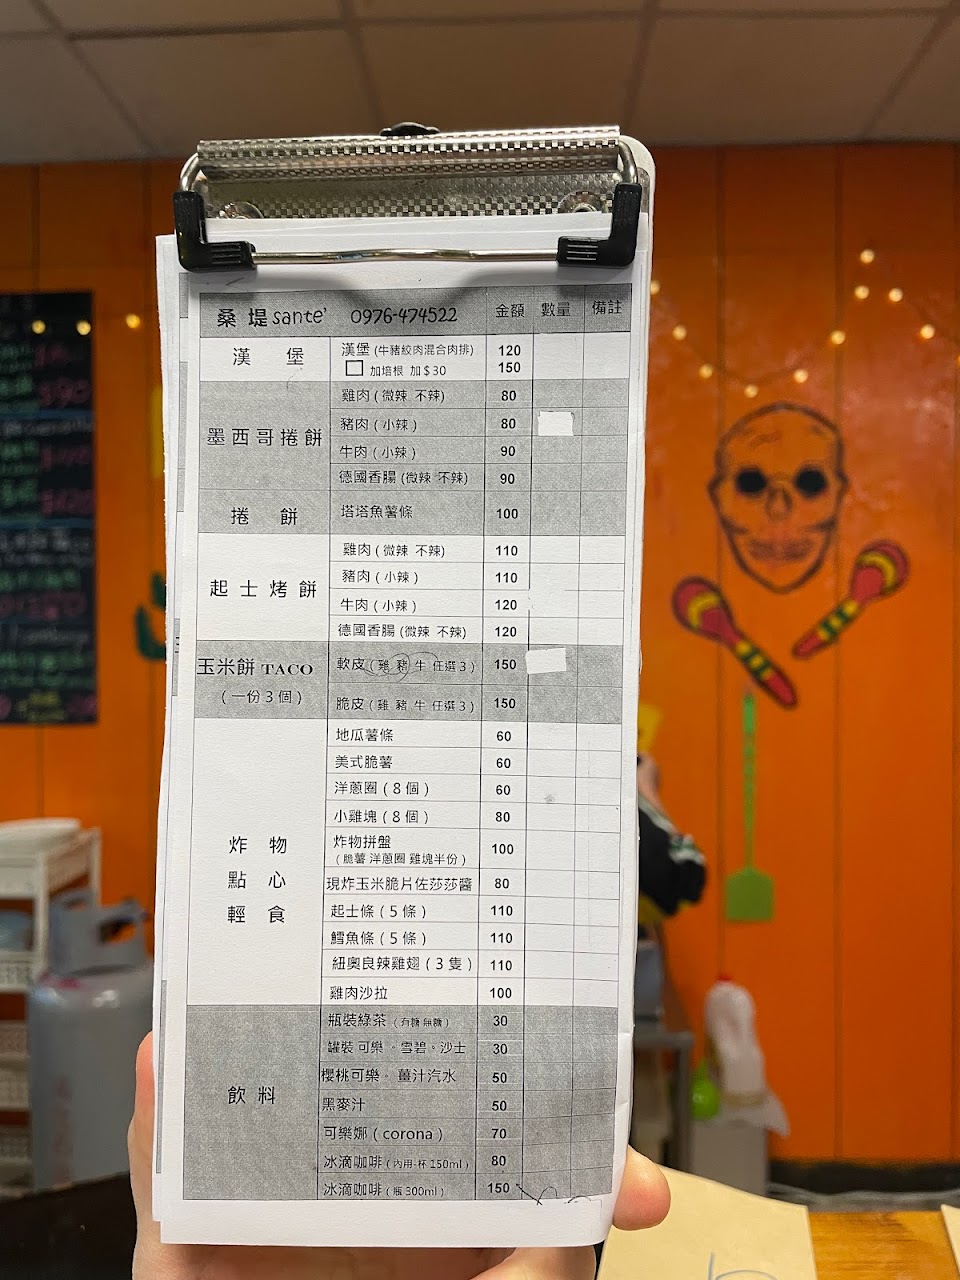 桑堤 sante' 0976-474522 金額 數量 備註
漢堡 漢堡 (牛豬絞肉混合肉排) 120
加培根 加$30 150
墨西哥捲餅 雞肉 (微辣 不辣) 80
豬肉 (小辣) 80
牛肉 (小辣) 90
德國香腸 (微辣 不辣) 90
捲餅 塔塔魚薯條 100
起士烤餅 雞肉 (微辣 不辣) 110
豬肉 (小辣) 110
牛肉 (小辣) 120
德國香腸 (微辣 不辣) 120
玉米餅 TACO 軟皮 (雞 豬 牛 任選3) 150
(一份3個) 脆皮 (雞 豬 牛 任選3) 150
炸物 點心 輕食 地瓜薯條 60
美式脆薯 60
洋蔥圈 (8個) 60
小雞塊 (8個) 80
炸物拼盤 100
(脆薯 洋蔥圈 雞塊半份)
現炸玉米脆片佐莎莎醬 80
起士條 (5條) 110
鱈魚條 (5條) 110
紐奧良辣雞翅 (3隻) 110
雞肉沙拉 100
飲料 瓶裝綠茶 (有糖 無糖) 30
罐裝 可樂。雪碧。沙士 30
櫻桃可樂。薑汁汽水 50
黑麥汁 50
可樂娜 (corona) 70
冰滴咖啡 (內用-杯 150ml) 80
冰滴咖啡 (瓶 300ml) 150
$90